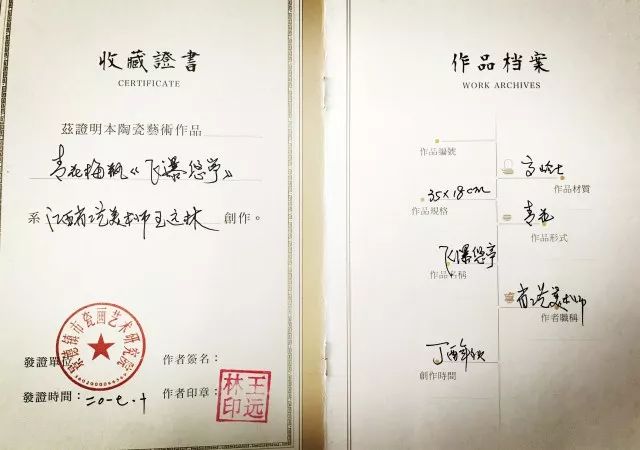 收藏證書
CERTIFICATE
茲證明本陶瓷藝術作品
青花梅瓶《飞瀑悠亭》
系江西省工艺美术师王远林創作。
景德镇市瓷画艺术研究院
發證單位
作者簽名：
發證時間：二〇一七.十
作者印章：
王远林印
作品档案
WORK ARCHIVES
作品編號
高岭土
作品材質
35×18cm
作品規格
青花
作品形式
飞瀑悠亭
作品名稱
省工艺美术师
作者職稱
丁酉年秋
創作時間